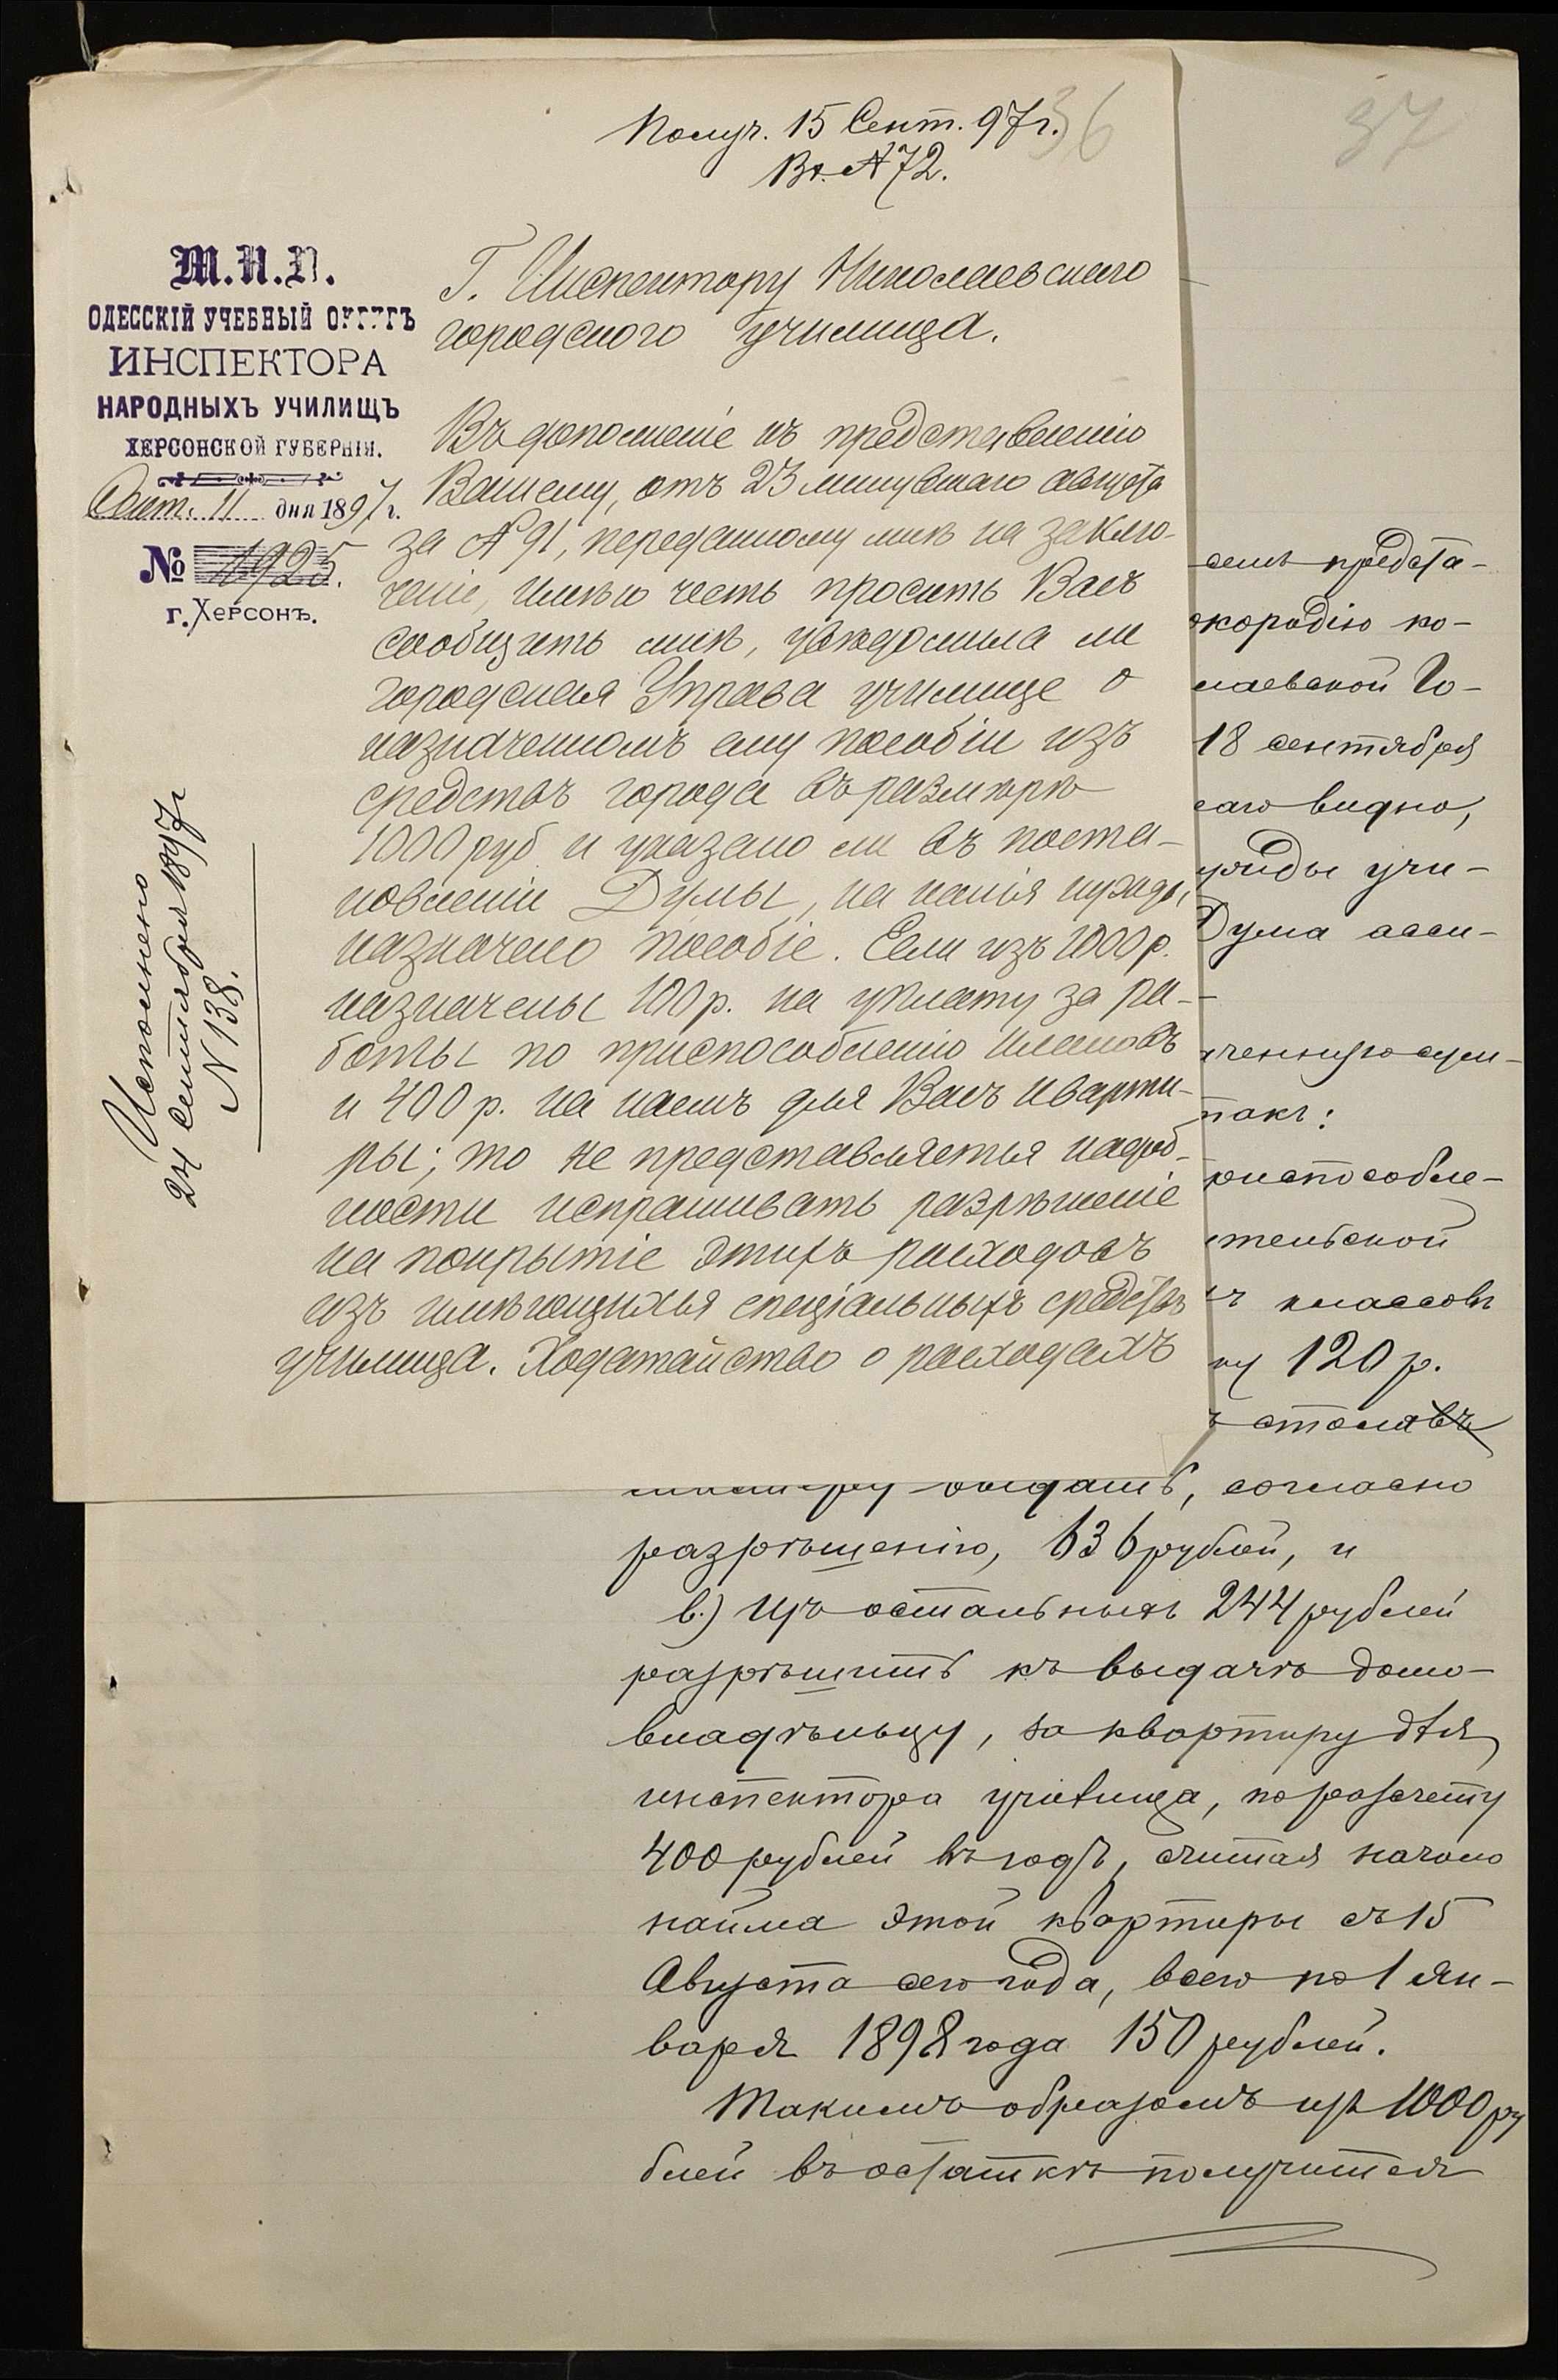 Получ. 15 Сент. 97 г.
Вх. № 72.
36
37
М.Н.П.
ОДЕССКІЙ УЧЕБНЫЙ ОКРУГЪ
ИНСПЕКТОРА
НАРОДНЫХЪ УЧИЛИЩЪ
ХЕРСОНСКОЙ ГУБЕРНІИ.
Сент. 11 дня 1897 г.
№ 1925.
г. Херсонъ.
Исполнено
24 сентября 1897 г
N 138.
Г. Инспектору Николаевскаго
городского училища.
Въ дополненіе къ представленію
Вашему, отъ 23 минувшаго августа
за № 91, переданному мнѣ на заклю-
ченіе, имѣю честь просить Васъ
сообщить мнѣ, увѣдомила ли
городская Управа училище о
назначенномъ ему пособіи изъ
средствъ города въ размѣрѣ
1000 руб и указано ли въ поста-
новленіи Думы, на какія нужды
назначено пособіе. Если изъ 1000 р.
назначены 100 р. на уплату за ра-
боты по приспособленію классовъ
и 400 р. на наемъ для Васъ кварти-
ры; то не представляется надоб-
ности испрашивать разрѣшеніе
на покрытіе этихъ расходовъ
изъ имѣющихся спеціальныхъ средствъ
училища. Ходатайство о расходахъ
семъ предста-
окородію ко-
лаевской Го-
18 сентября
саго видно,
ужды учи-
Дума асси-
ченную сум-
такъ:
приспособле-
тельской
ъ классовъ
ку 120 р.
ъ столовъ
выдать, согласно
разрѣшенію, 636 рублей, и
в.) изъ остальныхъ 244 рублей
разрѣшить къ выдачѣ домо-
владѣльцу, за квартиру для
инспектора училища, по разсчету
400 рублей въ годъ, считая начало
найма этой квартиры съ 15
Августа сего года, всего по 1 Ян-
варя 1898 года 150 рублей.
Такимъ образомъ изъ 1000 ру
блей въ остаткѣ получится